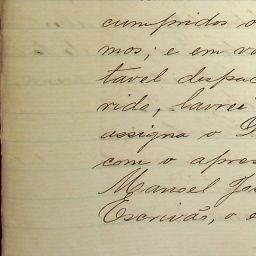 cumpridos o
mos; e em v
tavel despac
rido, lavrei
assigna o
com o apres
Manoel Jo
Escrivão, o e